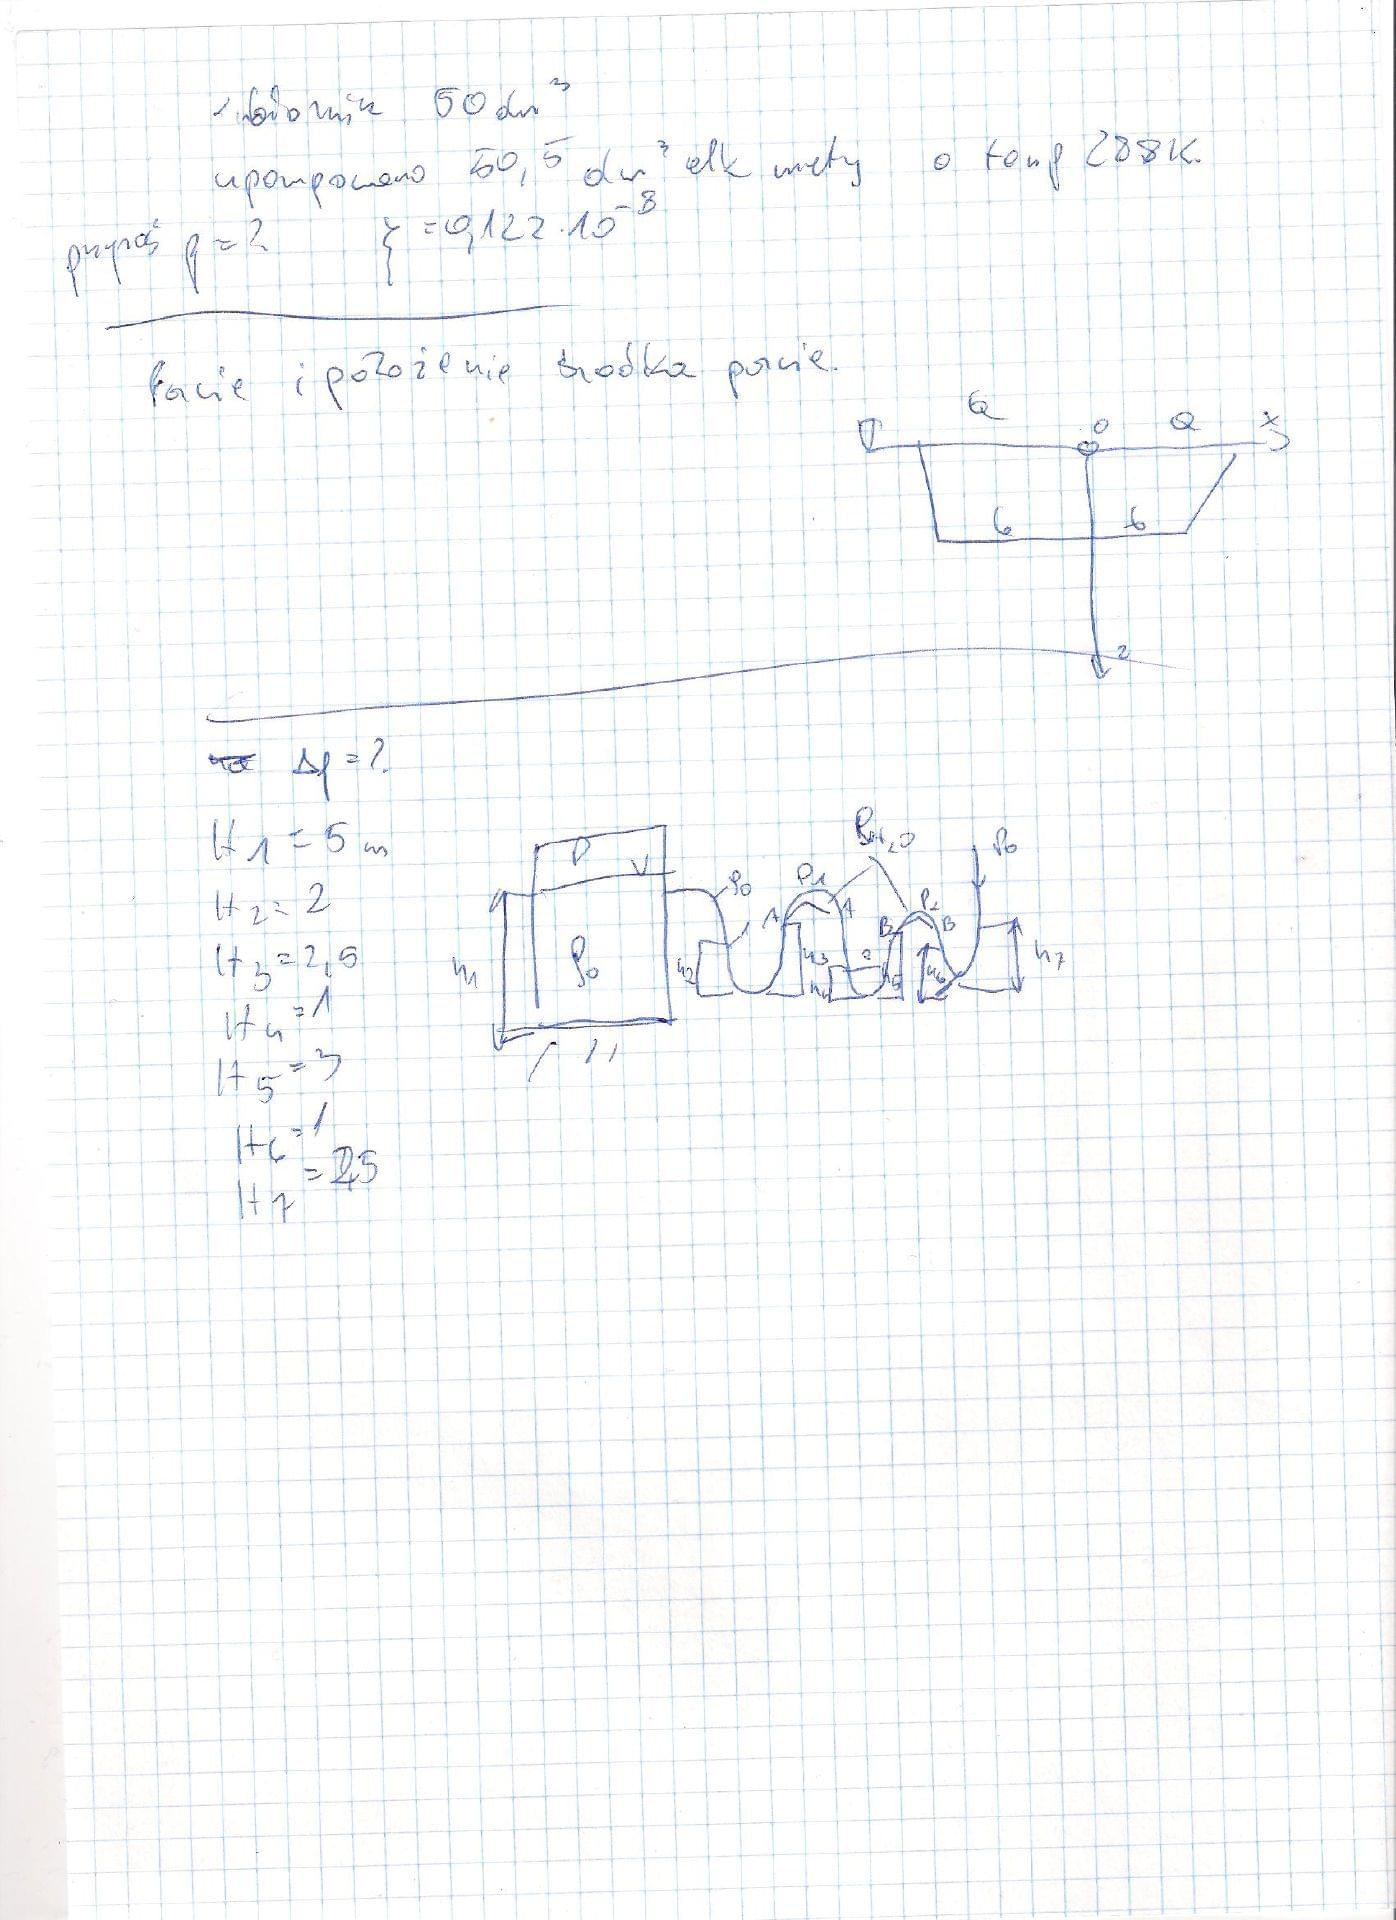 zbiornik 50 dm³
upompowano 50,5 dm³ alk metylo o temp 288K.
przyroś p = ? ξ = 0,122 · 10⁻⁸
Parcie i położenie środka parcie.
a
a
x
0
b
b
z
Δp = ?
H1 = 5 m
H2 = 2
H3 = 2,5
H4 = 1
H5 = 3
H6 = 1
H7 = 2,5
P
V
ρ0
h1
ρ0
h2
A
P1
A
h3
ρH2O
h4
2
h5
B
P2
B
h6
P0
h7